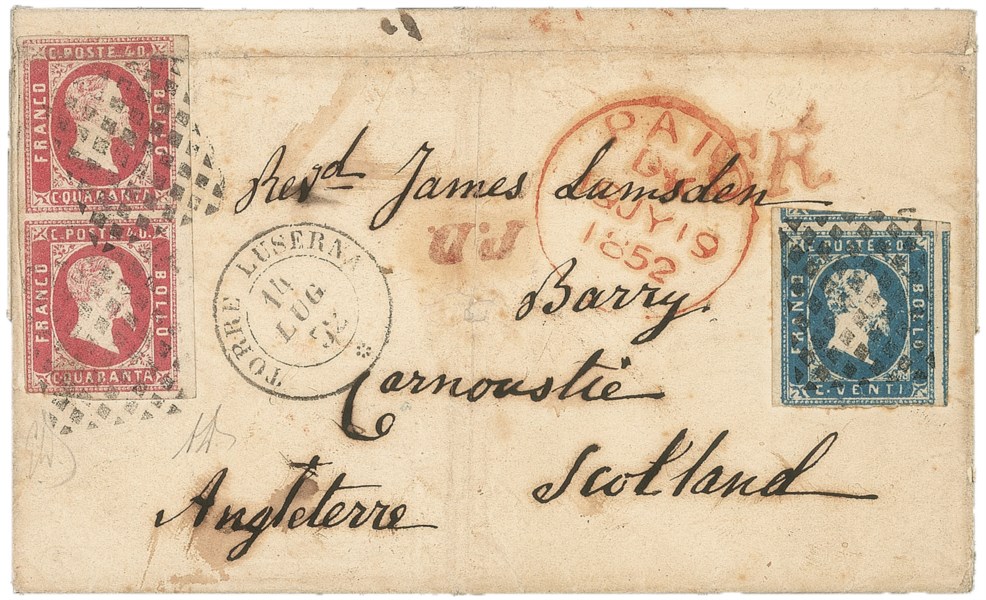 C. POSTE 40.
FRANCO
BOLLO
C. QUARANTA
C. POSTE 40.
FRANCO
BOLLO
C. QUARANTA
Revd James Lumsden
Barry
Carnoustie
Scotland
Angleterre
TORRE LUSERNA
14
LUG
52
*
PAID
JY 19
1852
P.D.
C. POSTE 20.
FRANCO
BOLLO
C. VENTI